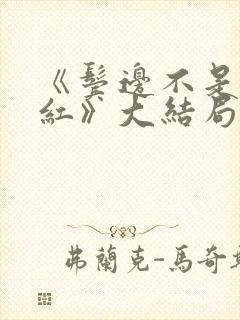 《鬓邊不是
紅》大結局
弗蘭克-馬奇